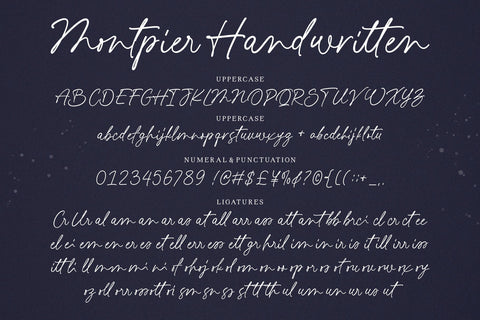 Montpier Handwritten
UPPERCASE
ABCDEFGHIJKLMNOPQRSTUVWXYZ
UPPERCASE
abcdefghijklmnopqrstuvwxyz + abcdehijklotu
NUMERAL & PUNCTUATION
0123456789 !@#$£¥%&?©{((:;+_,.
LIGATURES
Cr Ur al am an ar as at all arr ass att ant bb br ci cl cr ct ee
el ei em en er es et ell err ess ett gh hril im in ir is it ill irr iss
itt li ll mm
rr ss
oll orr oss ott ri sm sn ss st tt th ul um un ur us ut